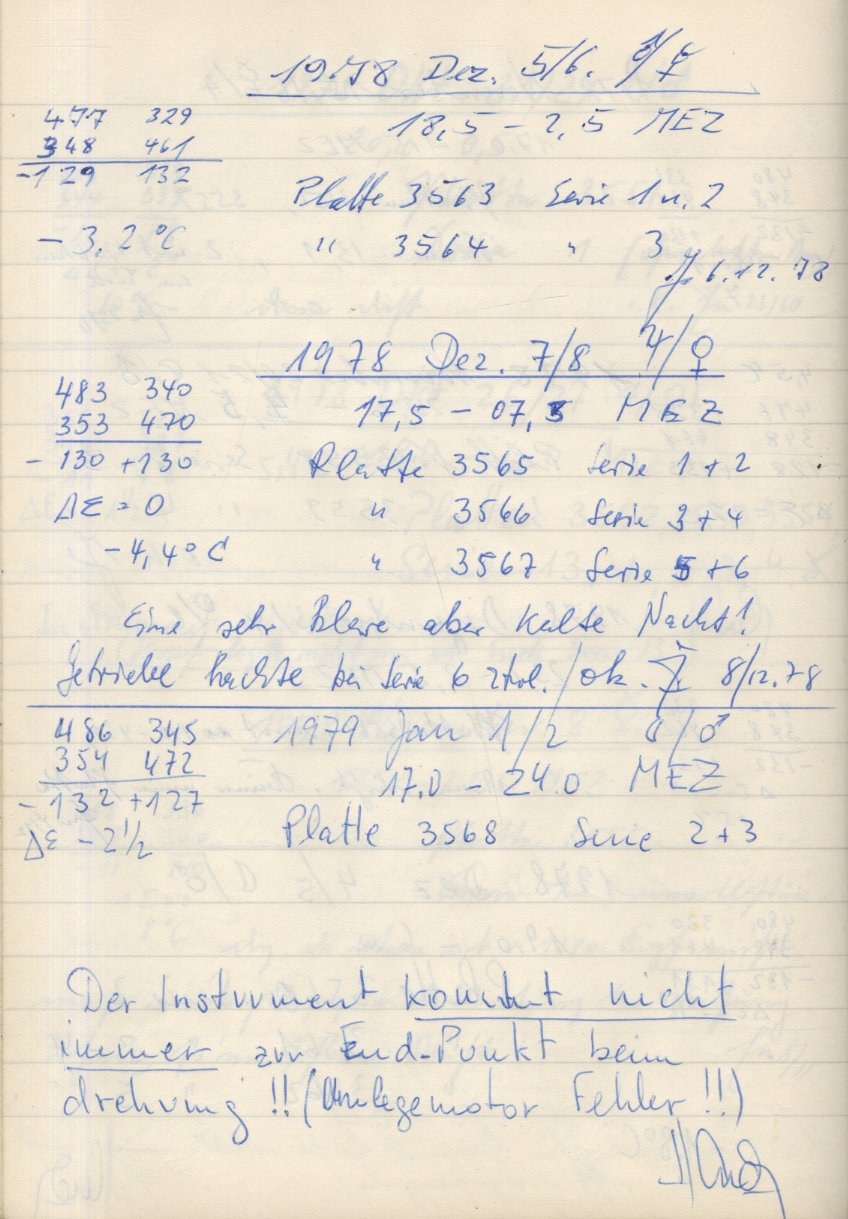 1978 Dez. 5/6. ♂/☿
477 329
18,5 – 2,5 MEZ
348 461
-129 132
Platte 3563 Serie 1 u. 2
– 3,2 °C
" 3564 " 3
6.12.78
1978 Dez. 7/8 ♃/♀
483 340
17,5 – 07,5 MEZ
353 470
- 130 +130
Platte 3565 Serie 1+2
Δε = 0
" 3566 Serie 3+4
-4,4° C
" 3567 Serie 5+6
Eine sehr klare aber kalte Nacht!
Getriebe hackte bei Serie 6 /ok. 8/12.78
486 345
1979 Jan 1/2 ☾/♂
354 472
17.0 – 24.0 MEZ
- 132 +127
Δε - 2 1/2
Platte 3568 Serie 2+3
Der Instrument kommt nicht
immer zur End-Punkt beim
drehung !! (Umlegemotor Fehler !!)